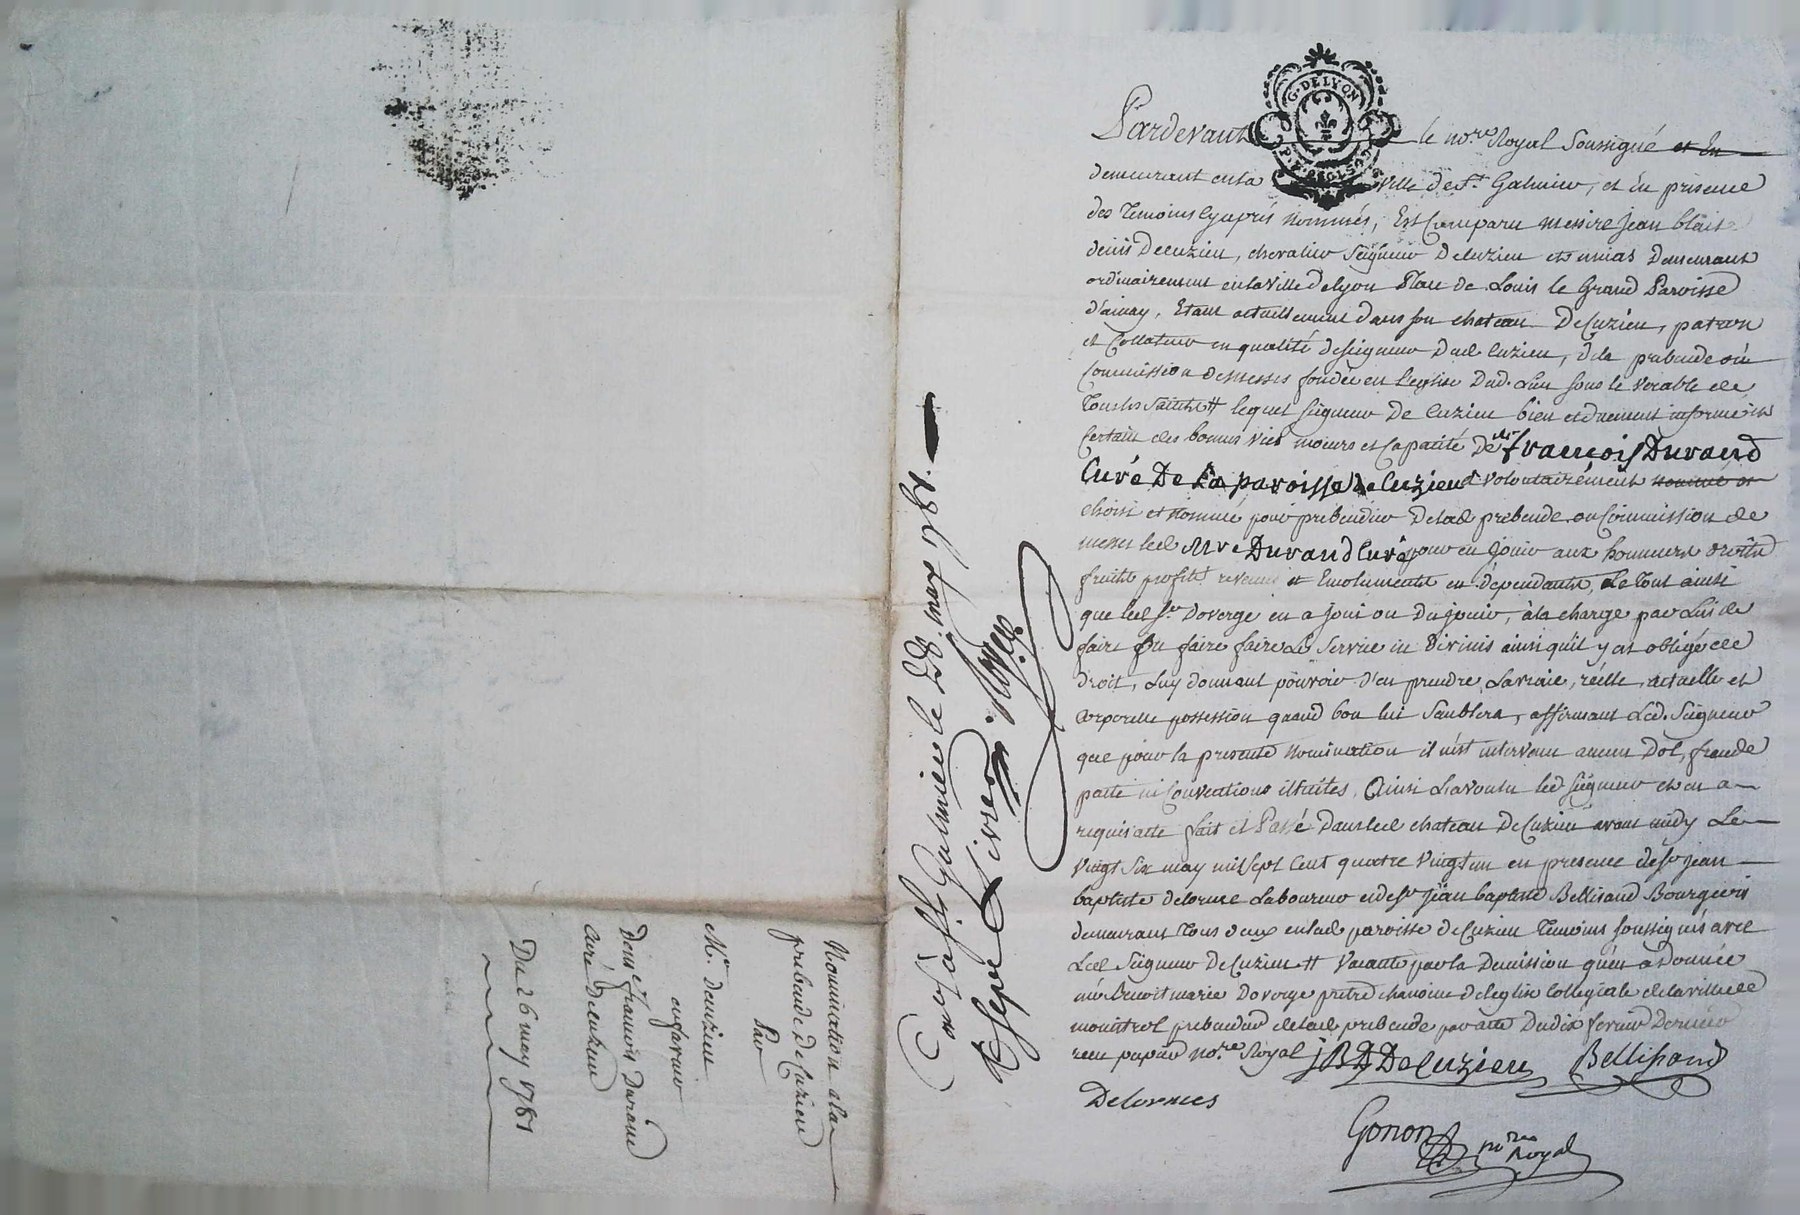 G. DE LYON
Pardevant le no.re Royal Soussigné et En
demeurant en la ville de St. Galmier, et En présence
des Temoins Cyaprés Nommés, Est Comparu Messire Jean blaise
denis Decuzieu, chevalier Seigneur Decuzieu et Demeurant
ordinairement en la ville de lyon Place de Louis le Grand Paroisse
d'ainay, Etant actuellement dans son chateau De Cuzieu, patron
et Collateur en qualité de seigneur dud. Cuzieu, de la prebende ou
Commission de Messes fondée en l'eglise Dud. Lieu sous le Vocable de
Tous les Saints # lequel seigneur de Cuzieu bien et duement informé et
Certain des bonnes vies moeurs et Capacité De mre françois Durand
Curé De la paroisse de Cuzieu a volontairément nommé et
choisi et nommé pour prebendier de lad. prebende ou Commission de
messes led. Mre Durand Curé pour en Jouir aux honneurs droits
fruits profits revenus et Emoluments en dépendants, Le Tout ainsi
que led. Sr. Doverge en a Joui ou Du Jouir, à la charge par Lui de
faire ou faire faire Le Service in Divinis ainsi qu'il y est obligé de
droit, Luy donnant pouvoir d'en prendre La vraie, réelle, actuelle et
Corporelle possession quand bon lui Semblera, affirmant Led. Seigneur
que pour la presente Nomination il n'est intervenu aucun Dol, fraude
pacte ni Conventions illicites. Ainsi L'a voulu led Seigneur et en a
requis acte fait et Passé Dans led. chateau De Cuzieu avant midy Le
Vingt Six may mil Sept Cent quatre Vingt un en presence de Sr. Jean
baptiste delorme Laboureur et de Sr. Jean baptiste Bellissand Bourgeois
demeurant Tous deux en lad. paroisse de Cuzieu Temoins soussignés avec
Led. Seigneur De Cuzieu # Vacante par la Demission qu'en a Donnée
Mre Benoit marie Doverge prêtre chanoine de l'eglise Collegiale de la ville de
monistrol prebendier de lad. prebende par acte Du dix fevrier Dernier
recu par no.re Royal JBD De Cuzieu Bellissand
Delormes
Gonon no.re Royal
Con.lé à St. Galmier le 28 may 1781.
Nomination a la
prebende de Cuzieu
Par
Mr. decuzieu
en faveur
De me francois Durand
Curé de cuzieu
Du 26 may 1781